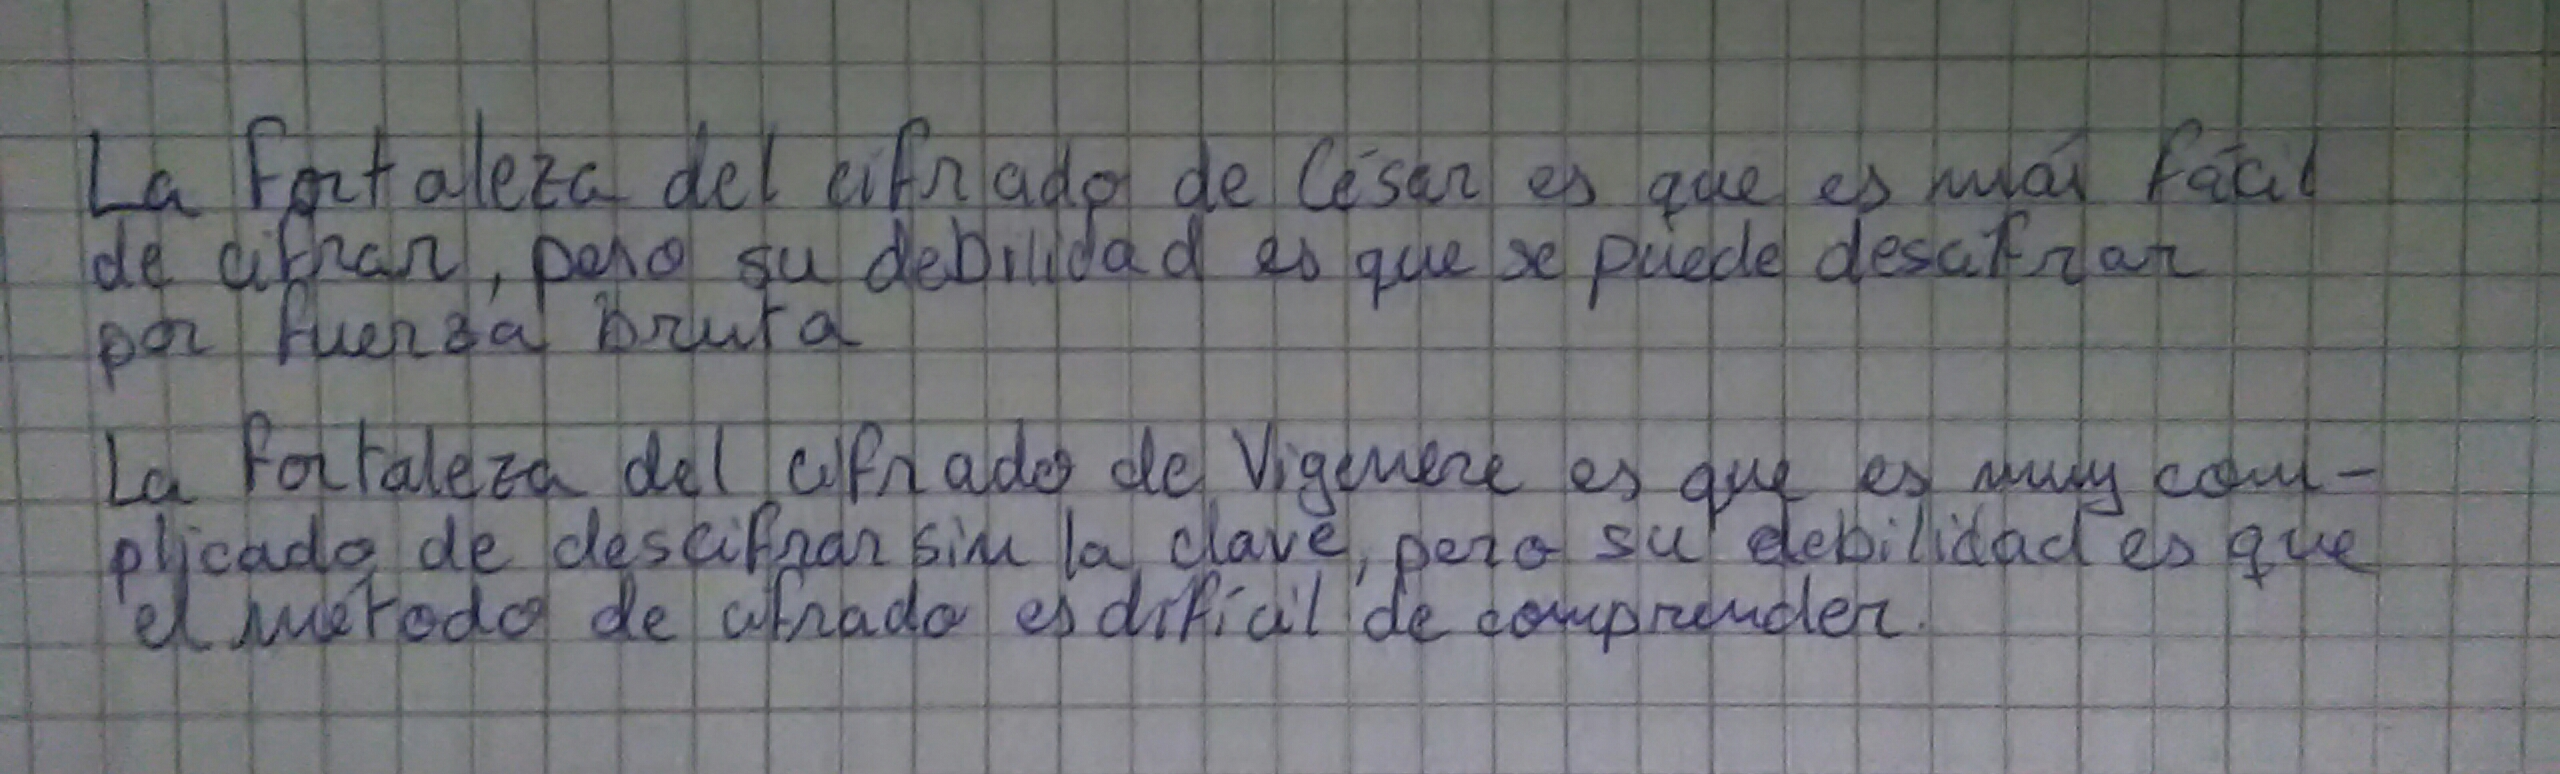 La fortaleza del cifrado de César es que es más fácil
de cifrar, pero su debilidad es que se puede descifrar
por fuerza bruta
La fortaleza del cifrado de Vigenere es que es muy com-
plicado de descifrar sin la clave, pero su debilidad es que
el método de cifrado es difícil de comprender.